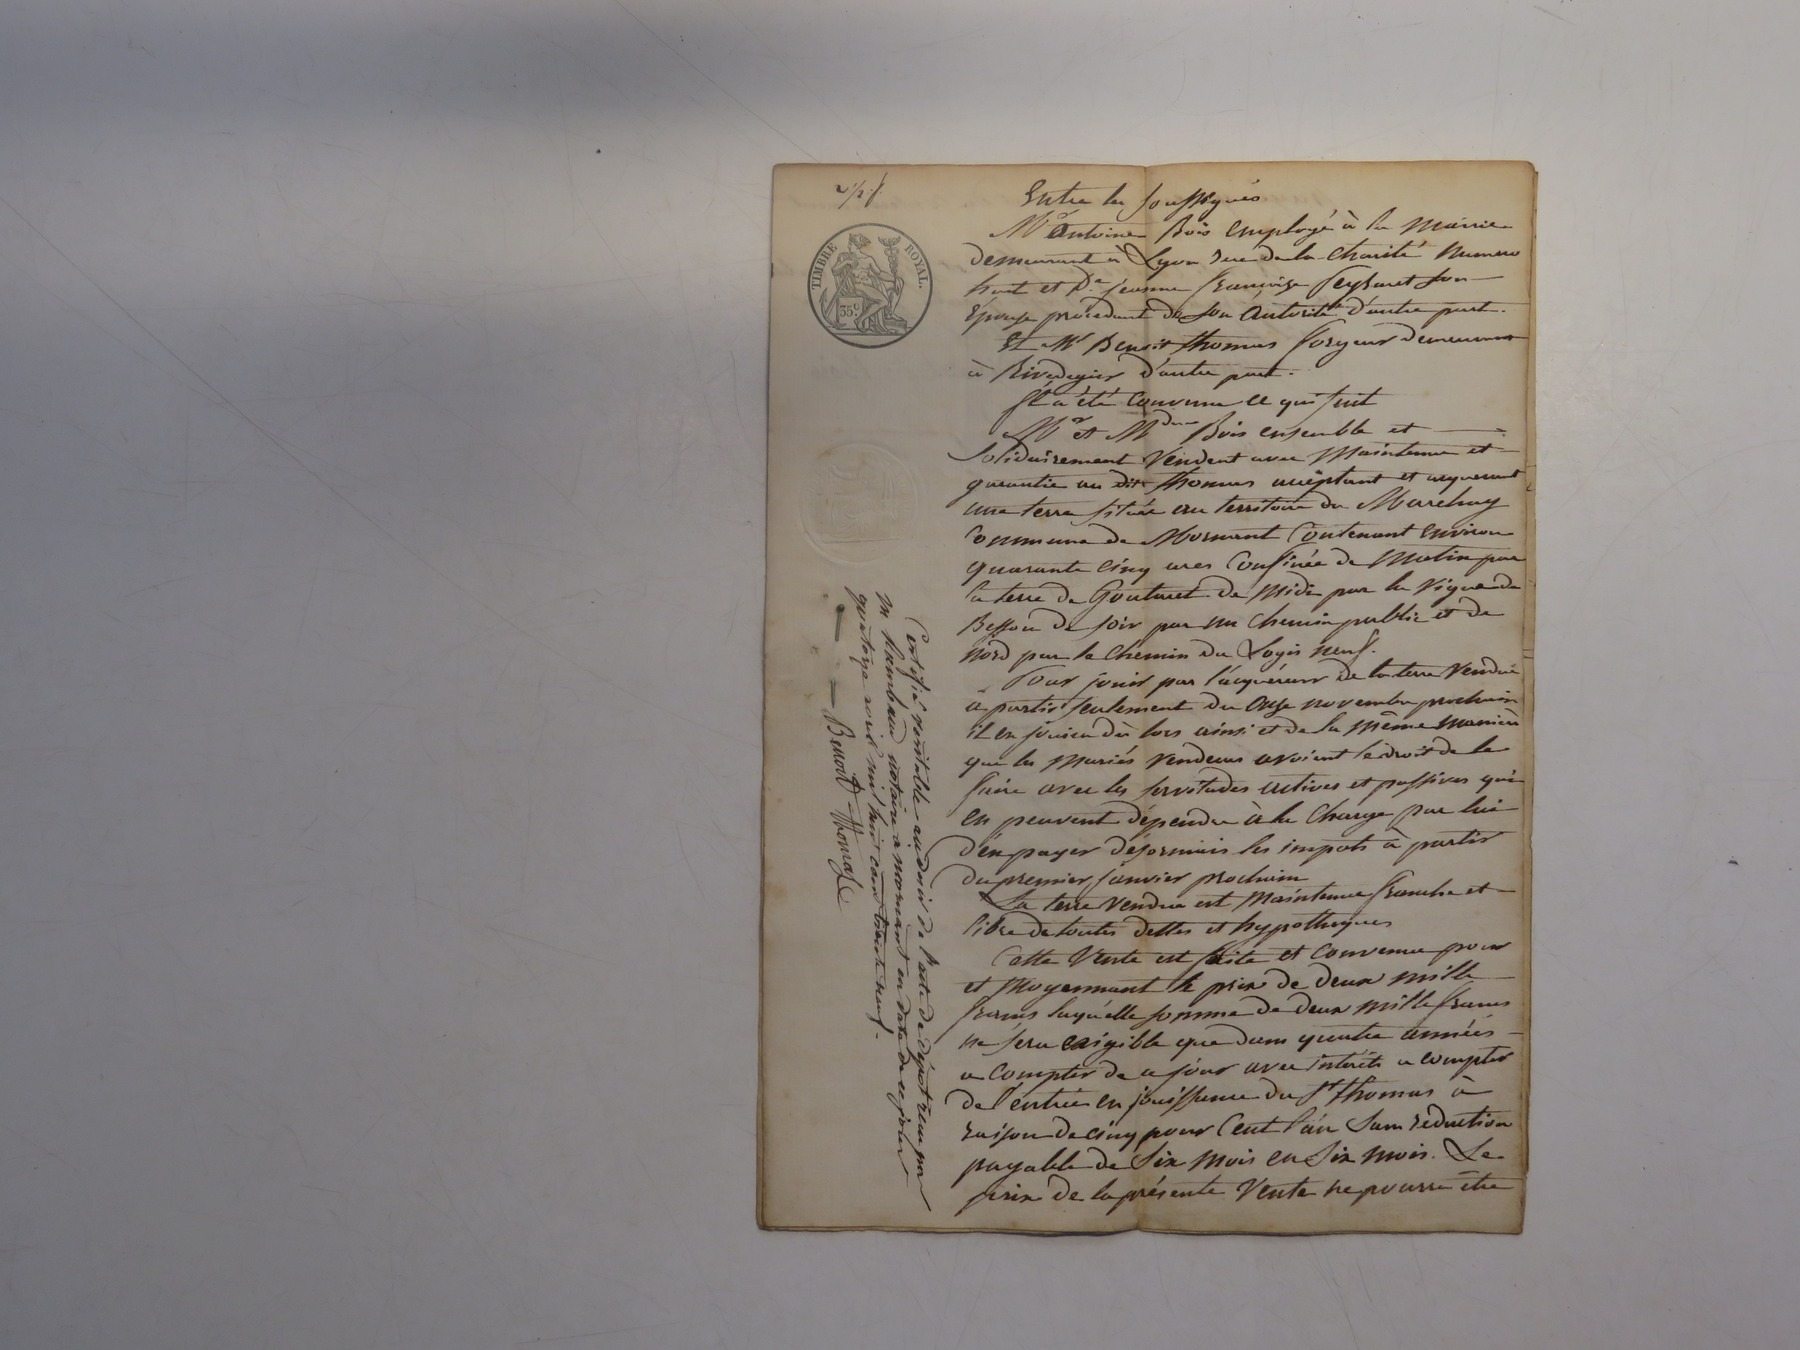 TIMBRE ROYAL.
35c
Entre les soussignés
Mr Antoine Bois employé à la Mairie
demeurant à Lyon rue de la Charité Numero
huit et De jeanne françoise son
Épouse procédant de son Autorité d'autre part.
Et Mr Benoit thomas forgeur demeurant
à Rivedegier d'autre part.
Il a été Convenu ce qui suit
Mr et Mdme Bois ensemble et
Solidairement Vendent avec Maintenue et
garantie au dit thomas acceptant et acquerant
une terre située au territoire du
Commune de Mornant Contenant environ
quarante cinq ares Confinée de Matin par
la terre de de Midi par la Vigne de
de soir par un Chemin public et de
Nord par le Chemin du Logis neuf.
Pour jouir par l'acquéreur de la terre Vendue
à partir seulement du onze novembre prochain
il en jouira dès lors ainsi et de la même manière
que les Mariés Vendeurs avoient le droit de le
faire avec les servitudes actives et passives qui
en peuvent dépendre à la Charge par lui
d'en payer désormais les impots à partir
du premier janvier prochain
La terre Vendue est Maintenue franche et
libre de toutes dettes et hypotheques
Cette Vente est faite et Convenue pour
et Moyennant le prix de deux mille
francs laquelle somme de deux mille francs
ne sera exigible que dans quatre années
a Compter de ce jour avec intérêts a compter
de l'entrée en jouissance du Sr thomas à
raison de cinq pour Cent l'an Sans réduction
payable de Six Mois en Six Mois. Le
prix de la présente Vente ne pourra être
Certifié véritable au désir de l'acte de dépôt reçu par
notaire à mornant en date de ce jour
quatorze mil huit cent trente neuf.
Benoit Thomas